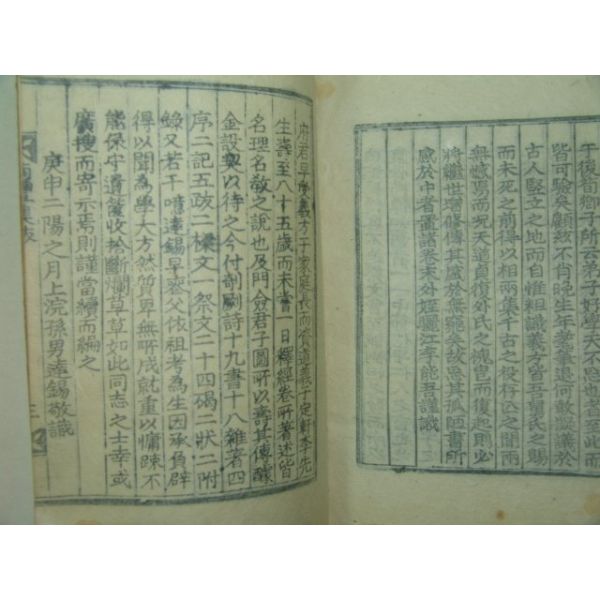 午後荀鄕子所云弟子好學天不忘也
皆可驗矣顧余不肖晩生年耄退何敢議於
古人堅立之地而自惟粗識義方皆吾舅氏之賜
而未死之前得以相兩集千古之役存亾之間而
無憾焉而況天道貞復外氏之傀而復起則必
將繼世增修傳其盛於無窮矣故忘其孤陋書所
感於中者置諸卷末外姪驪江李能吾謹識
府君早學義方于家庭長而從遊義于定軒李先
生義至八十五歲而未嘗一日釋經卷所著述皆
名理名敎之說也及門僉君子圖所以壽其傳醵
金設契以待之今付剞劂詩十九書十八雜著四
序二記五跋二樑文一祭文二十四碣二狀二附
錄又若干嗚達錫早孼父依祖考為生因承負辟
得以聞為學大方然所畢無所成就重以慵疎不
能保守遺篋收拾斷爛草草如此同志之士幸或
廣搜而寄示焉則謹當續而編之
庚申二陽之月上浣孫男達錫敬識